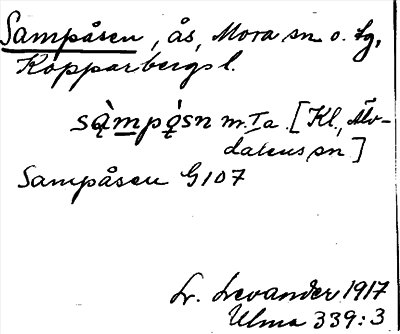 Sampåsen, ås, Mora sn o. tg,
Kopparbergs l.
są̀mpǫ́sn m.Ia. [Kl., Älv-
dalens sn]
Sampåsen G107
Lr. Levander 1917
Ulma 339:3